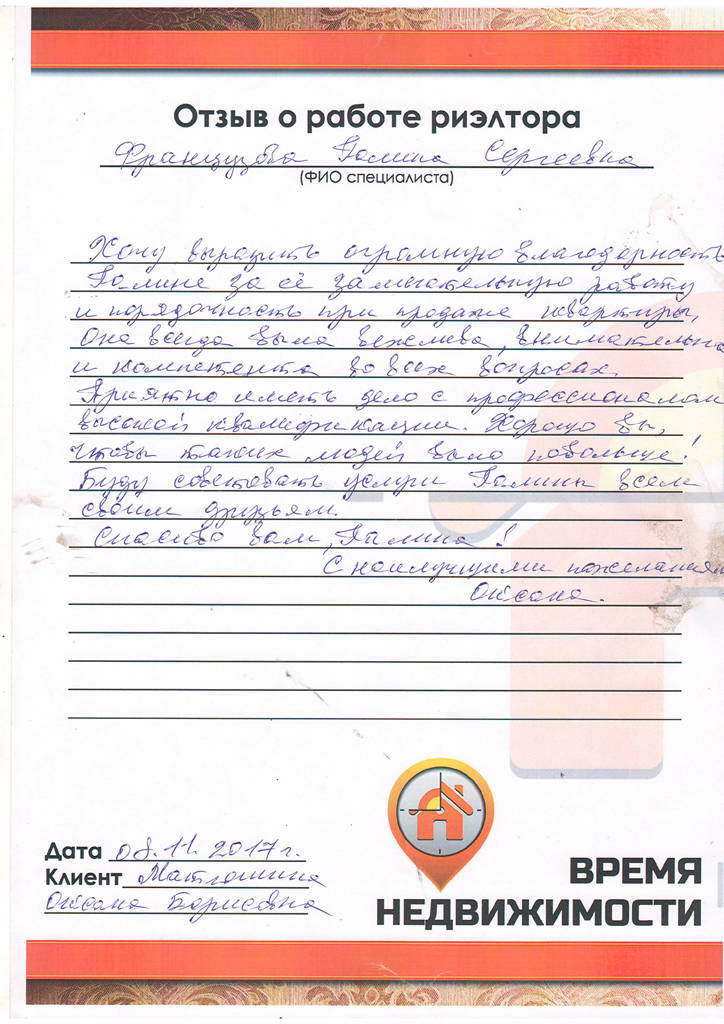 Отзыв о работе риэлтора
Французова Галина Сергеевна
(ФИО специалиста)
Хочу выразить огромную благодарность
Галине за её замечательную работу
и порядочность при продаже квартиры,
Она всегда была вежлива, внимательна
и компетентна во всех вопросах.
Приятно иметь дело с профессионалом
высокой квалификации. Хорошо бы,
чтобы таких людей было побольше!
Буду советовать услуги Галины всем
своим друзьям.
Спасибо Вам, Галина!
С наилучшими пожеланиям
Оксана.
Дата 08.11.2017г.
Клиент
Оксана Борисовна
ВРЕМЯ
НЕДВИЖИМОСТИ